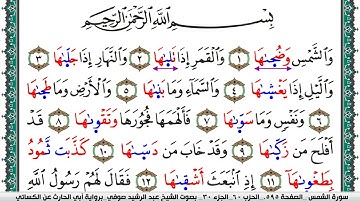 بِسْمِ اللَّهِ الرَّحْمَٰنِ الرَّحِيمِ
وَالشَّمْسِ وَضُحَىٰهَا ١ وَالْقَمَرِ إِذَا تَلَىٰهَا ٢ وَالنَّهَارِ إِذَا جَلَّىٰهَا ٣
وَالَّيْلِ إِذَا يَغْشَىٰهَا ٤ وَالسَّمَآءِ وَمَا بَنَىٰهَا ٥ وَالْأَرْضِ وَمَا طَحَىٰهَا
٦ وَنَفْسٍ وَمَا سَوَّىٰهَا ٧ فَأَلْهَمَهَا فُجُورَهَا وَتَقْوَىٰهَا ٨ قَدْ
أَفْلَحَ مَن زَكَّىٰهَا ٩ وَقَدْ خَابَ مَن دَسَّىٰهَا ١٠ كَذَّبَتْ ثَمُودُ
بِطَغْوَىٰهَا ١١ إِذِ انۢبَعَثَ أَشْقَىٰهَا ١٢ فَقَالَ لَهُمْ رَسُولُ اللَّهِ
سورة الشمس . الصفحة ٥٩٥ . الحزب ٦٠ . الجزء ٣٠ . بصوت الشيخ عبد الرشيد صوفي . برواية أبي الحارث عن الكسائي